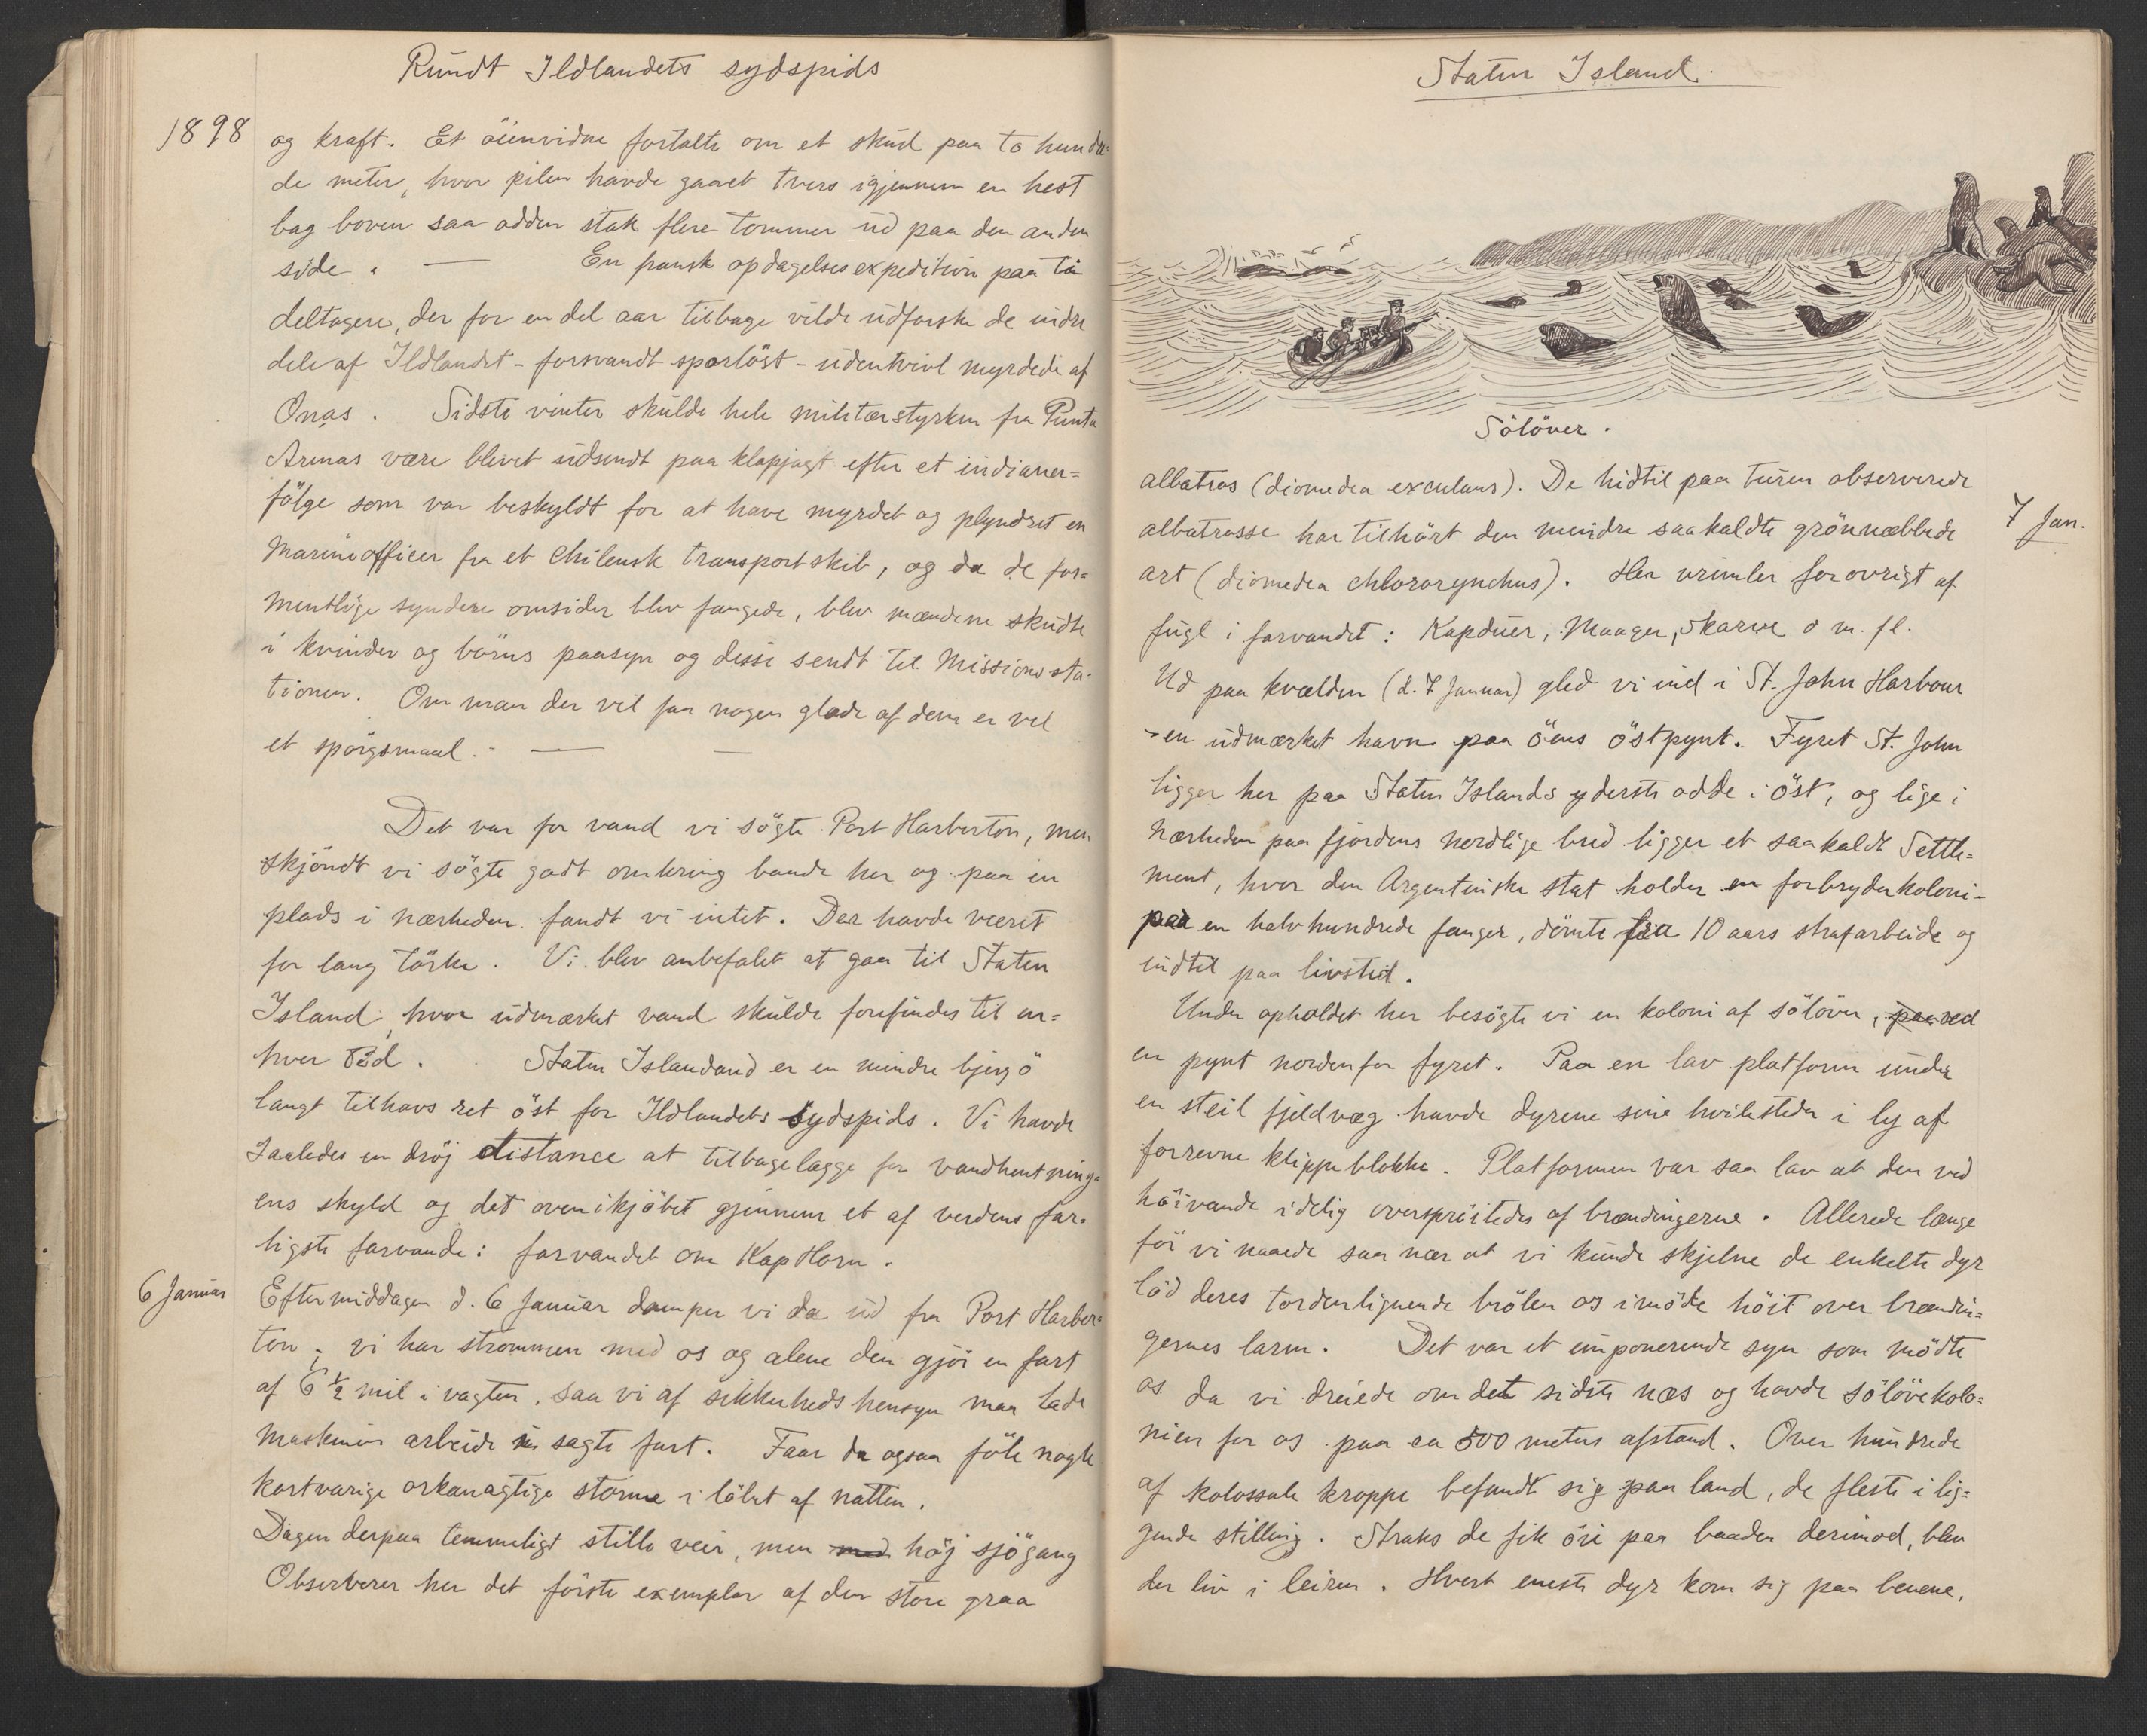 Rundt Ildlandets sydspids
1898
og kraft. Et öienvidne fortalte om et skud paa to hundre-
de meter, hvor pilen havde gaaet tvers igjennem en hest
bag boven saa odden stak flere tommer ud paa den anden
side. — En fransk opdagelsesexpedition paa ti
deltagere, der for en del aar tilbage vilde udforske de indre
dele af Ildlandet - forsvandt sporlöst - udentvivl myrdede af
Onas. Sidste vinter skulde hele militærstyrken fra Punta
Arenas være blevet udsendt paa klapjagt efter et indianer=
fölge som var beskyldt for at have myrdet og plyndret en
Marineofficer fra et Chilensk transportskib, og da de for=
mentlige syndere omsider blev fangede, blev mændene skudte
i kvinders og börns paasyn og disse sendt til Missionssta-
tionen. Om man der vil faa nogen glæde af dem er vel
et spörgsmaal. — —
Det var for vand vi sögte Port Harberton, men
skjöndt vi sögte godt omkring baade her og paa en
plads i nærheden fandt vi intet. Der havde været
for lang törke. Vi blev anbefalet at gaa til Staten
Island, hvor udmærket vand skulde forefindes til en=
hver tid. Staten Islandand er en mindre bjergö
langt tilhavs ret öst for Ildlandets sydspids. Vi havde
saaledes en dröj distance at tilbagelægge for vandhentning=
ens skyld og det ovenikjöbet gjennem et af verdens far=
ligste farvande: farvandet om Kap Horn.
6 Januar
Eftermiddagen d. 6 Januar damper vi da ud fra Port Harber=
ton; vi har strömmen med os og alene den gjör en fart
af 6 ½ mil i vagten, saa vi af sikkerhedshensyn maa lade
Maskinen arbeide sagte fart. Faar da ogsaa föle nogle
kortvarige orkanagtige storme i löbet af natten.
Dagen derpaa temmeligt stille veir, men med höj sjögang
Observerer her det förste exemplar af den store graa
Staten Island.
Sölöver.
albatros (diomedea exculans). De hidtil paa turen observerede
7 Jan.
albatrosse har tilhört den mindre saakaldte grönnæbbede
art (diomedea chlororynchus). Her vrimler forovrigt af
fugl i farvandet: Kapduer, Maager, skarve o m. fl.
Ud paa kvælden (d. 7 Januar) gled vi ind i St. John Harbour
- en udmærket havn paa öens östpynt. Fyret St. John
ligger her paa Staten Islands yderste odde i öst, og lige i
nærheden paa fjordens nordlige bred ligger et saakaldt Settle=
ment, hvor den Argentinske stat holder en forbryderkoloni-
paa en halvhundrede fanger, dömte fra 10 aars strafarbeide og
indtil paa livstid.
Under opholdet her besögte vi en koloni af sölöver, paa ved
en pynt nordenfor fyret. Paa en lav platform under
en steil fjeldvæg havde dyrene sine hvilesteder i ly af
forrevne klippeblokke. Platformen var saa lav at den ved
höivande idelig oversprøitedes af brændingerne. Allerede længe
för vi naaede saa nær at vi kunde skjelne de enkelte dyr
löd deres tordenlignende brölen os imöde höit over brændin=
gernes larm. Det var et imponerende syn som mödte
os da vi dreiede om det sidste næs og havde sölövekolo=
nien for os paa ca 500 meters afstand. Over hundrede
af kolossale kroppe befandt sig paa land, de fleste i lig=
gende stilling. Straks de fik öie paa baaden derimod, blev
der liv i leiren. Hvert eneste dyr kom sig paa benene,